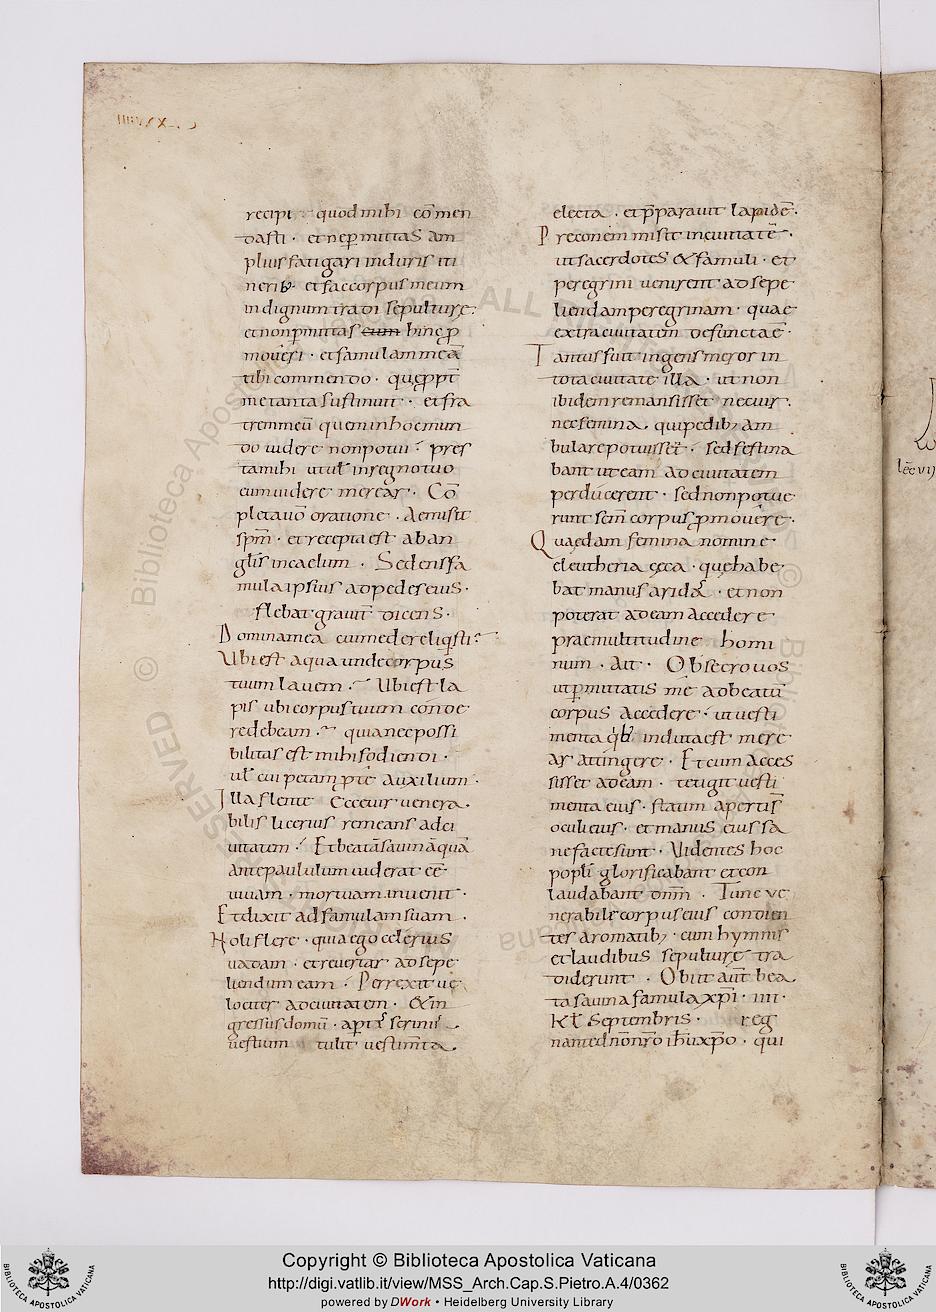 recipi · quod mihi com̄en
dasti · et ne p̱mittas am
plius fatigari in duris iti
nerib; · et fac corpus meum
in dignum tradi sepulturę:
et non p̱mittas eum hinc p̱
moveri · et famulam meā
tibi commendo · quę ppt̄
me tanta sustinuit · et fra
trem meū quem in hoc mun
do videre non potui · pręs
ta mihi ut ul̄ in regno tuo
eum videre merear · Cō
pleta v̄o oratione · Aemisit
spm̄ · et recepta est ab an
glīs in caelum · Sed en s̄ fa
mula ipsius ad pedes eius ·
flebat gravit̄ dicens ·
Domina mea cui me dereliqsti?
Ubi est aqua unde corpus
tuum lavem · Ubi est la
pis ubi corpus tuum conde
re debeam · quia nec possi
bilitas est mihi fodiendi ·
ul̄ cui petam p̱te auxilium ·
Illa flente Ecce vir venera
bilis licerius remeans ad ci
vitatem · Et beatā savinā quā
ante paululum viderat eē
vivam · mortuam invenit ·
Et dixit ad famulam suam ·
Noli flere · quia ego celerius
vadam · et revertar ad sepe
liendum eam · Perrexit ve
lociter ad civitatem · & in
gressus domū · ap̱tis scriniis
vestium tulit vestim̄ta ·
electa · et p̄paravit lapidē ·
Preconem misit in civitatē ·
ut sacerdotes & famuli · et
peregrini venirent ad sepe
liendam peregrinam · quae
extra civitatem defuncta ē ·
Tantus fuit ingens meror in
tota civitate illa · ut non
ibidem remansisset nec vir ·
nec femina · qui pedib; am
bulare potuisset · sed festina
bant ut eam ad civitatem
perducerent · sed non potue
runt sc̄m corpus p̱movere ·
Quaedam femina nomine
eleutheria cęca · quę habe
bat manus aridas · et non
poterat ad eam accedere
prae multitudine homi
num · Ait · Obsecro vos
ut p̱mittatis me ad beatū
corpus accedere · ut vesti
menta qb; induta est mere
ar attingere · Et cum acces
sisset ad eam · tetigit vesti
menta eius · statim apertis̄
oculi eius · et manus eius sa
ne factę sunt · Videntes hoc
popli glorificabant et con
laudabant dn̄m · Tunc ve
nerabile corpus eius condien
tes aromatib; · cum hymnis
et laudibus sepulturę tra
diderunt · Obiit aūt bea
ta savina famula xp̄i · iiii ·
Kl̄ Septembris · reg
nante dn̄o nr̄o ih̄u xp̄o · qui
lēc vij